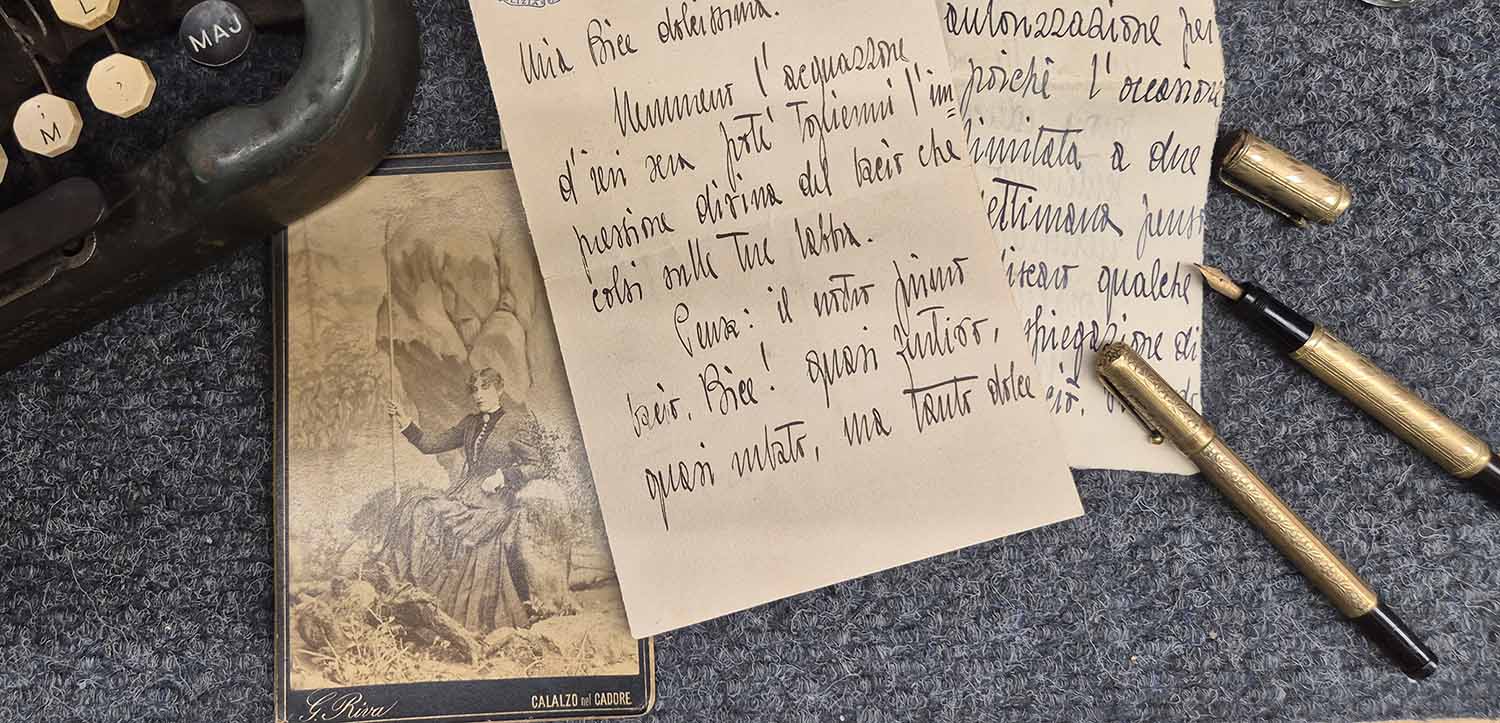 L
MAJ
M
LIZIA
Mia Bice dolcissima.
Nemmeno l'acquazzone
d'ieri sera poté togliermi l'im=
pressione divina del bacio che
colsi sulle tue labbra.
Pensa: il nostro primo
bacio, Bice! quasi furtivo,
quasi rubato, ma tanto dolce
autorizzazione per
poichè l'occasione
limitata a due
settimana penso
qualche
spiegazione di
G. Riva
CALALZO nel CADORE